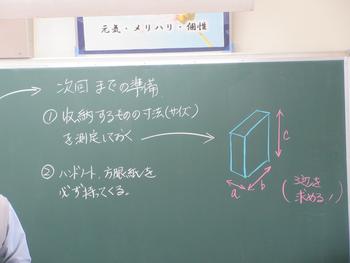 元気・メリハリ・個性
次回までの準備
① 収納するものの寸法(サイズ)
を測定しておく
② ハンドノート、方眼紙を
必ず持ってくる。
a
b
c
(3辺を
求める!)